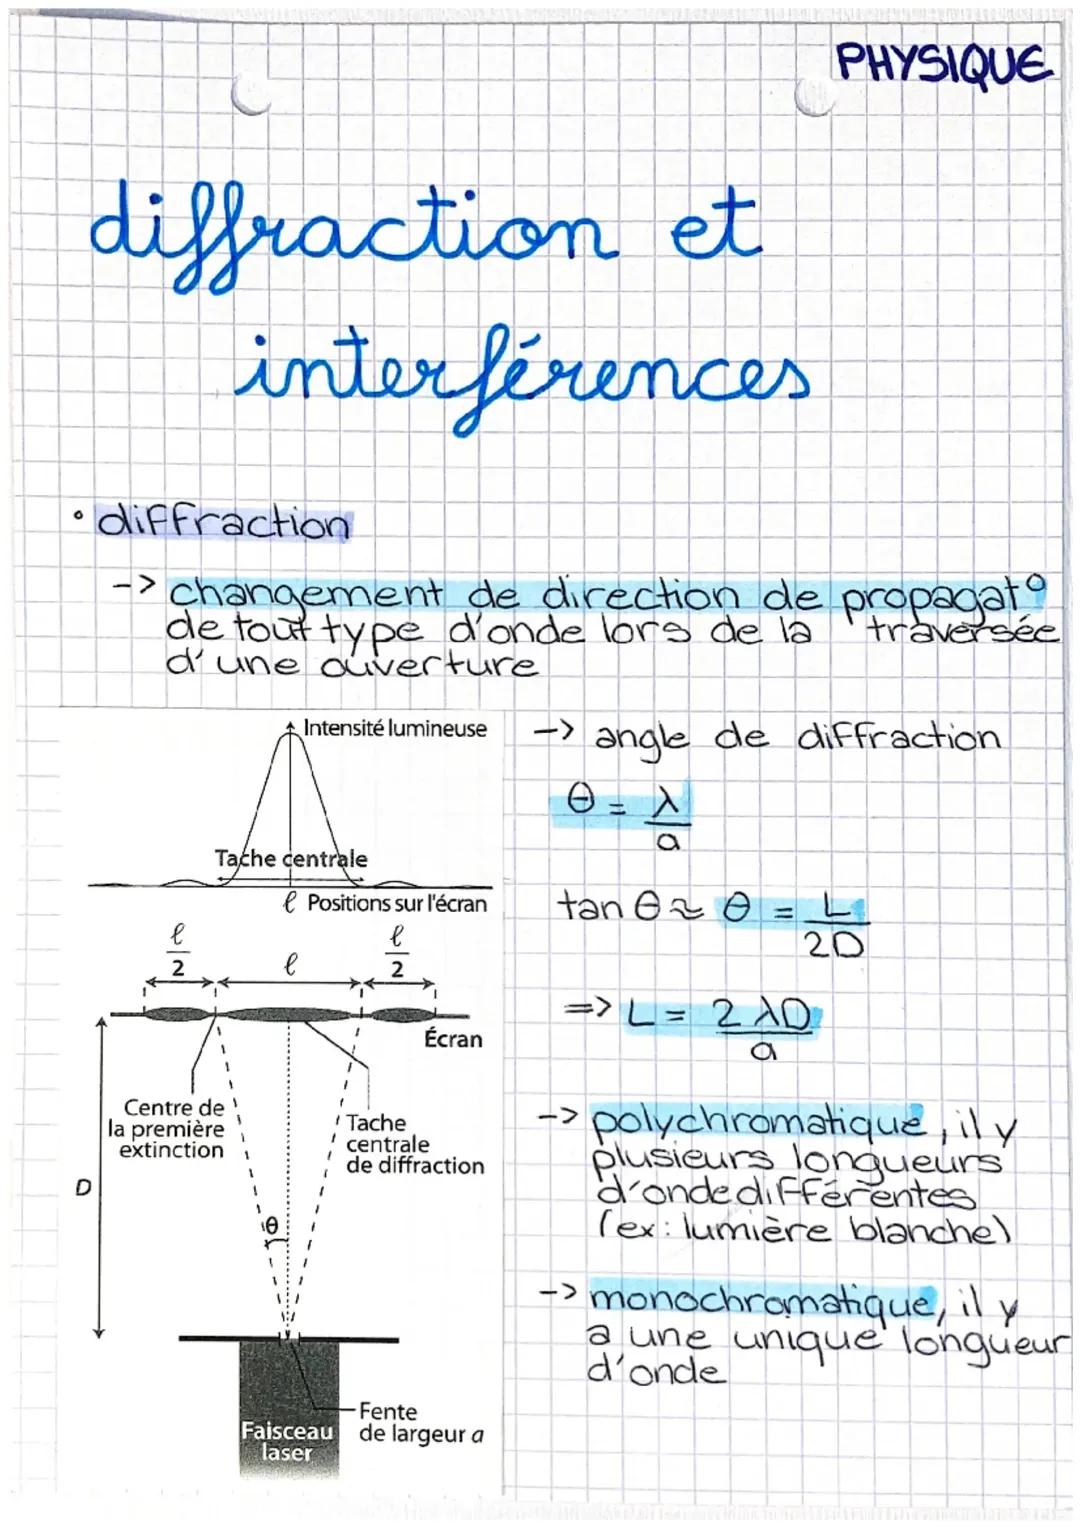 PHYSIQUE
diffraction et
interférences
• diffraction
-> changement de direction de propagat°
de tout type d'onde lors de la traversée
d'une ouverture
Intensité lumineuse
Tache centrale
ℓ Positions sur l'écran
ℓ/2 ℓ ℓ/2
Écran
Centre de
la première
extinction
Tache
centrale
de diffraction
D
θ
Fente
de largeur a
Faisceau
laser
-> angle de diffraction
θ = λ/a
tan θ ≈ θ = L/2D
=> L = 2λD/a
-> polychromatique, il y
plusieurs longueurs
d'onde différentes
(ex: lumière blanche)
-> monochromatique, il y
a une unique longueur
d'onde